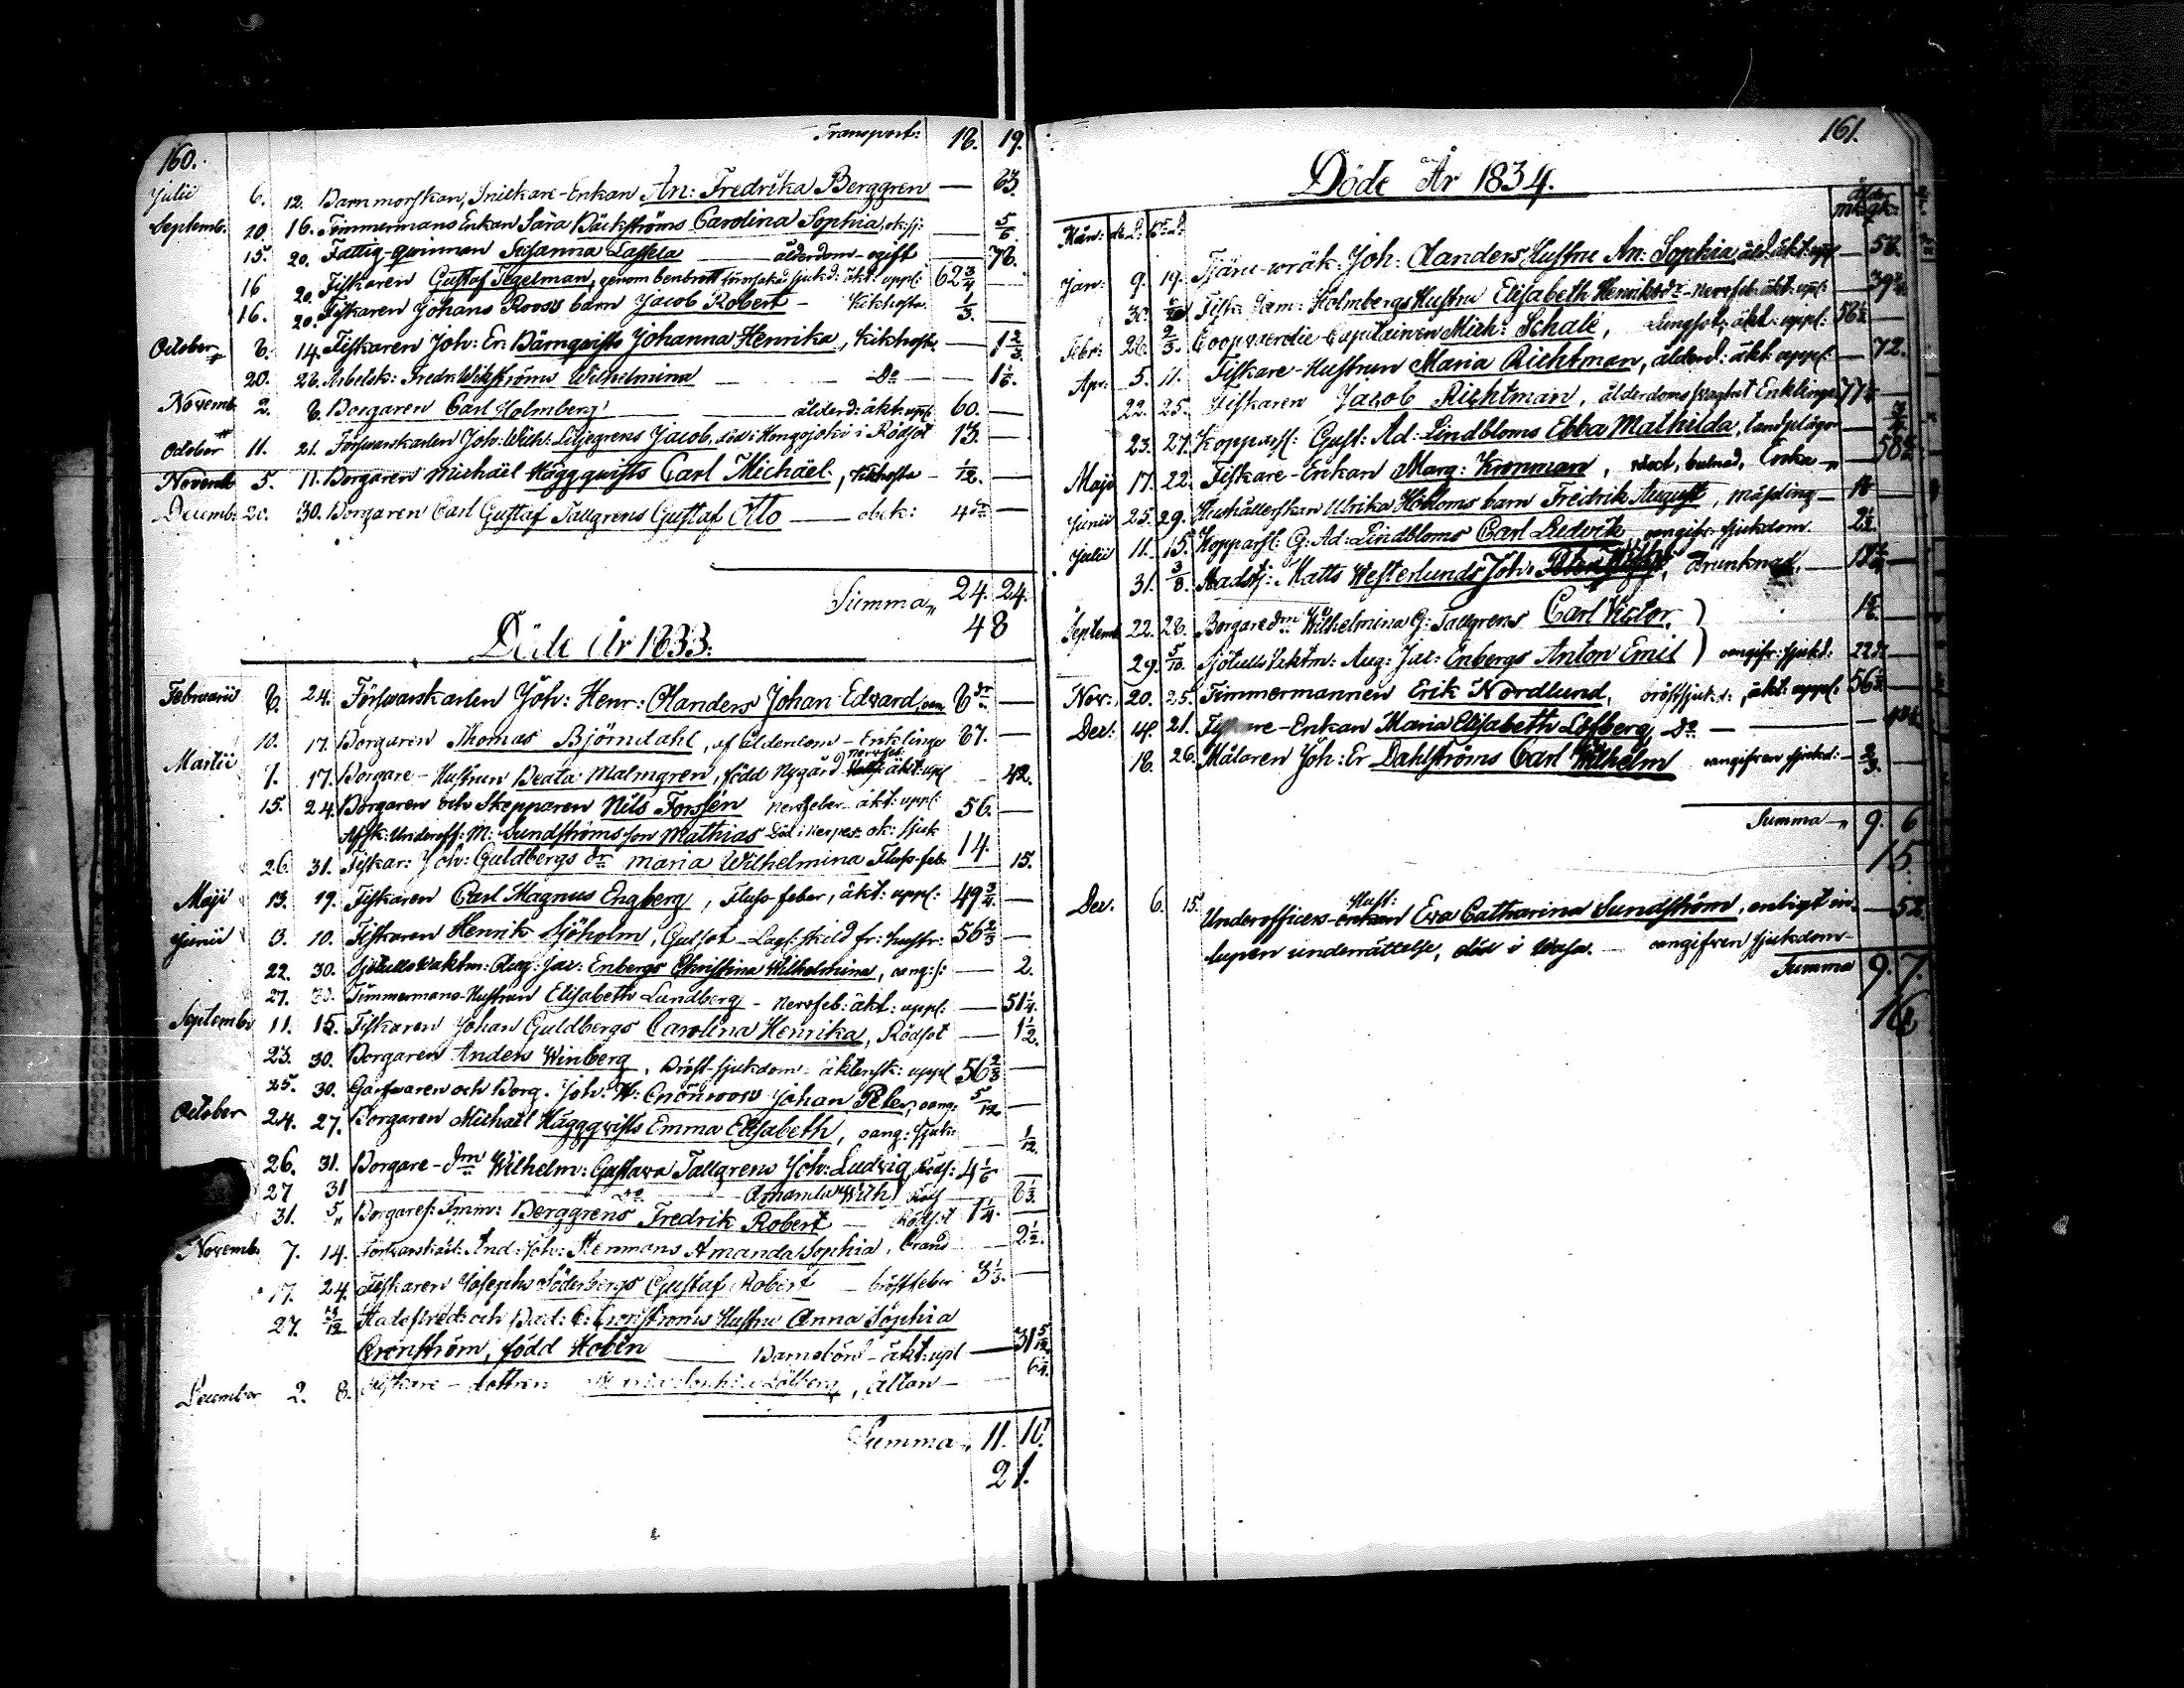 160.
Transport: 18. 19.
Julii 6. 12. Barnmorskan, Snickare-Enkan An: Fredrika Berggren — 63.
Septemb. 10. 16. Timmermans Enkan Sara Bäckströms Carolina Sophia, ok: sj: — 5/6
15. 20. Fattig-qvinnan Susanna Lassela — ålderdom - ogift — 78.
16 20. Fiskaren Gustaf Tegelman, genom benbrott förorsakad sjukd: äkt: uppl: 62 3/4
16. 20. Fiskaren Johans Rooss barn Jacob Robert - Kikhosta. 1/3. —
October 8. 14. Fiskaren Joh: Er: Bärnqvists Johanna Henrika, Kikhosta — 1 2/3.
20. 28. Arbetsk: Fredr: Wikströms Wilhelmina — Do — 1 1/6.
Novemb. 2. 8. Borgaren Carl Holmberg — ålderd: äkt: uppl: 60. —
October 11. 21. Försvarskarlen Joh: Wilh: Liljegrens Jacob, död i Kongojoki i Rödsot 13. —
Novemb 5. 11. Borgaren Michaël Häggqvists Carl Michaël, Kikhosta - 1/12. —
Decemb. 20. 30. Borgaren Carl Gustaf Tallgrens Gustaf Otto — obek: 4 dr —
Summa „ 24. 24.
48
Döde År 1833.
Februarii 8. 24. Försvarskarlen Joh: Henr: Olanders Johan Edvard, 8 dr —
10. 17. Borgaren Thomas Björndahl, af ålderdom - Enklinge 87. —
Martii 7. 17. Borgare-Hustrun Beata Malmgren, född Nygård nervfeb: äkt: uppl — 42.
15. 24. Borgaren och Skepparen Nils Forssén nervfeber - äkt: uppl: 56. —
Underoff: M: Sundströms son Mathias Död i ok: sjuk 14.
26. 31. Fiskar: Joh: Guldbergs dr Maria Wilhelmina Fluss-feb. — 15.
Maji 13. 19. Fiskaren Carl Magnus Engberg, Fluss-feber, äkt: uppl: 49 3/4 —
Junii 3. 10. Fiskaren Henrik Sjöholm, Gulsot - Lagl: skild fr: hustr: 56 2/3 —
22. 30. Sjötulls Vaktm: Aug: Jac: Enbergs Christina Wilhelmina, oang: s: — 2.
27. 30. Timmermans-Hustrun Elisabeth Lundberg - nervfeb: äkt: uppl: — 51 1/4.
Septembr 11. 15. Fiskaren Johan Guldbergs Carolina Henrika, Rödsot — 1 1/2.
23. 30. Borgaren Anders Winberg, Bröst-sjukdom: äktensk: uppl 56 2/3 —
25. 30. Garfvaren och Borg. Joh: W: Grönroos Johan Peter, oang: 5/12 —
October 24. 27. Borgaren Michaël Häggqvists Emma Elisabeth, oang: sjuk: — 1/12.
26. 31. Borgare-dm Wilhelm: Gustava Tallgrens Joh: Ludvig Röds: 4 1/6 —
27 31 Do Amanda Wilh — 8 1/3.
31. 5 Borgares: Berggrens Fredrik Robert — Rödsot 1 1/4. —
Novemb. 7. 14. Försvarskarl: And: Joh: Stenmans Amanda Sophia, brand — 2 1/2.
17. 24. Fiskaren Josephs Söderbergs Gustaf Robert — bröstfeber 3 1/3. —
27. /12 Stadsfisk: och C: Cronströms Hustru Anna Sophia
Cronström, född Holén — Barnsbörd - äkt: upl — 31 5/12.
December 2. 8. Fiskare-dottren Löfberg, Ältan — 6 1/4.
Summa „ 11. 10.
21.
161.
Döde År 1834.
Mån: ålder
mk: qk:
Jan: 9. 19. Joh: Olanders Hustru An: Sophia, äkt: uppl — 58.
30. Fisk: Sam: Holmbergs Hustru Elisabeth Henriksdr - Nervfeb: äkt: upl: — 39 3/4.
Febr: 26. 2/3. Coopvaerdie-Capitainen Mich: Schale, Lungsot, äkt: uppl: 56 1/2 —
Apr: 5. 11. Fiskare-Hustrun Maria Richtman, ålderd: äkt: uppl: — 72.
22. 25. Fiskaren Jacob Richtman, ålderdoms svaghet Enklinge 77 —
23. 27. Kopparsl: Gust: Ad: Lindbloms Ebba Mathilda, tandplågor —
Maji 17. 22. Fiskare-Enkan Marg: Kronman, Enka — 58
Junii 25. 29. Hushållerskan Ulrika Höbloms barn Freidrik August, mässling —
Julii 11. 15. Kopparsl: G: Ad: Lindbloms Carl Ludvik, oangifv: sjukdom. 2 1/2. —
31. 3/8. Matts Westerlunds Joh: drunknad. —
Septemb 22. 28. Borgare dm Wilhelmina G: Tallgrens Carl Victor. —
29. 5/10. Sjötulls Vaktm: Aug: Jac: Enbergs Anton Emil oangifv: sjukd: 22 dr —
Nov: 20. 25. Timmermannen Erik Nordlund, bröstsjukd:, äkt: uppl: 56 —
Dec: 14. 21. Fiskare-Enkan Maria Elisabeth Löfberg, Do —
18. 26. Målaren Joh: Er Dahlströms Carl Wilhelm oangifven sjukd: 2/3. —
Summa „ 9. 6
15.
Dec. 6. 15. Underofficers-enkan Hust: Eva Catharina Sundström, enligt in- — 52.
lupen underrättelse, död i Wasa. — oangifven sjukdom —
Summa 9. 7.
16